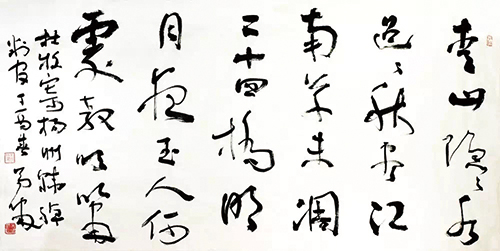 青山隐々水
迢々秋尽江
南草未凋
二十四橋明
月夜玉人何
處教吹箫
杜牧寄扬州韩绰
判官丁酉春